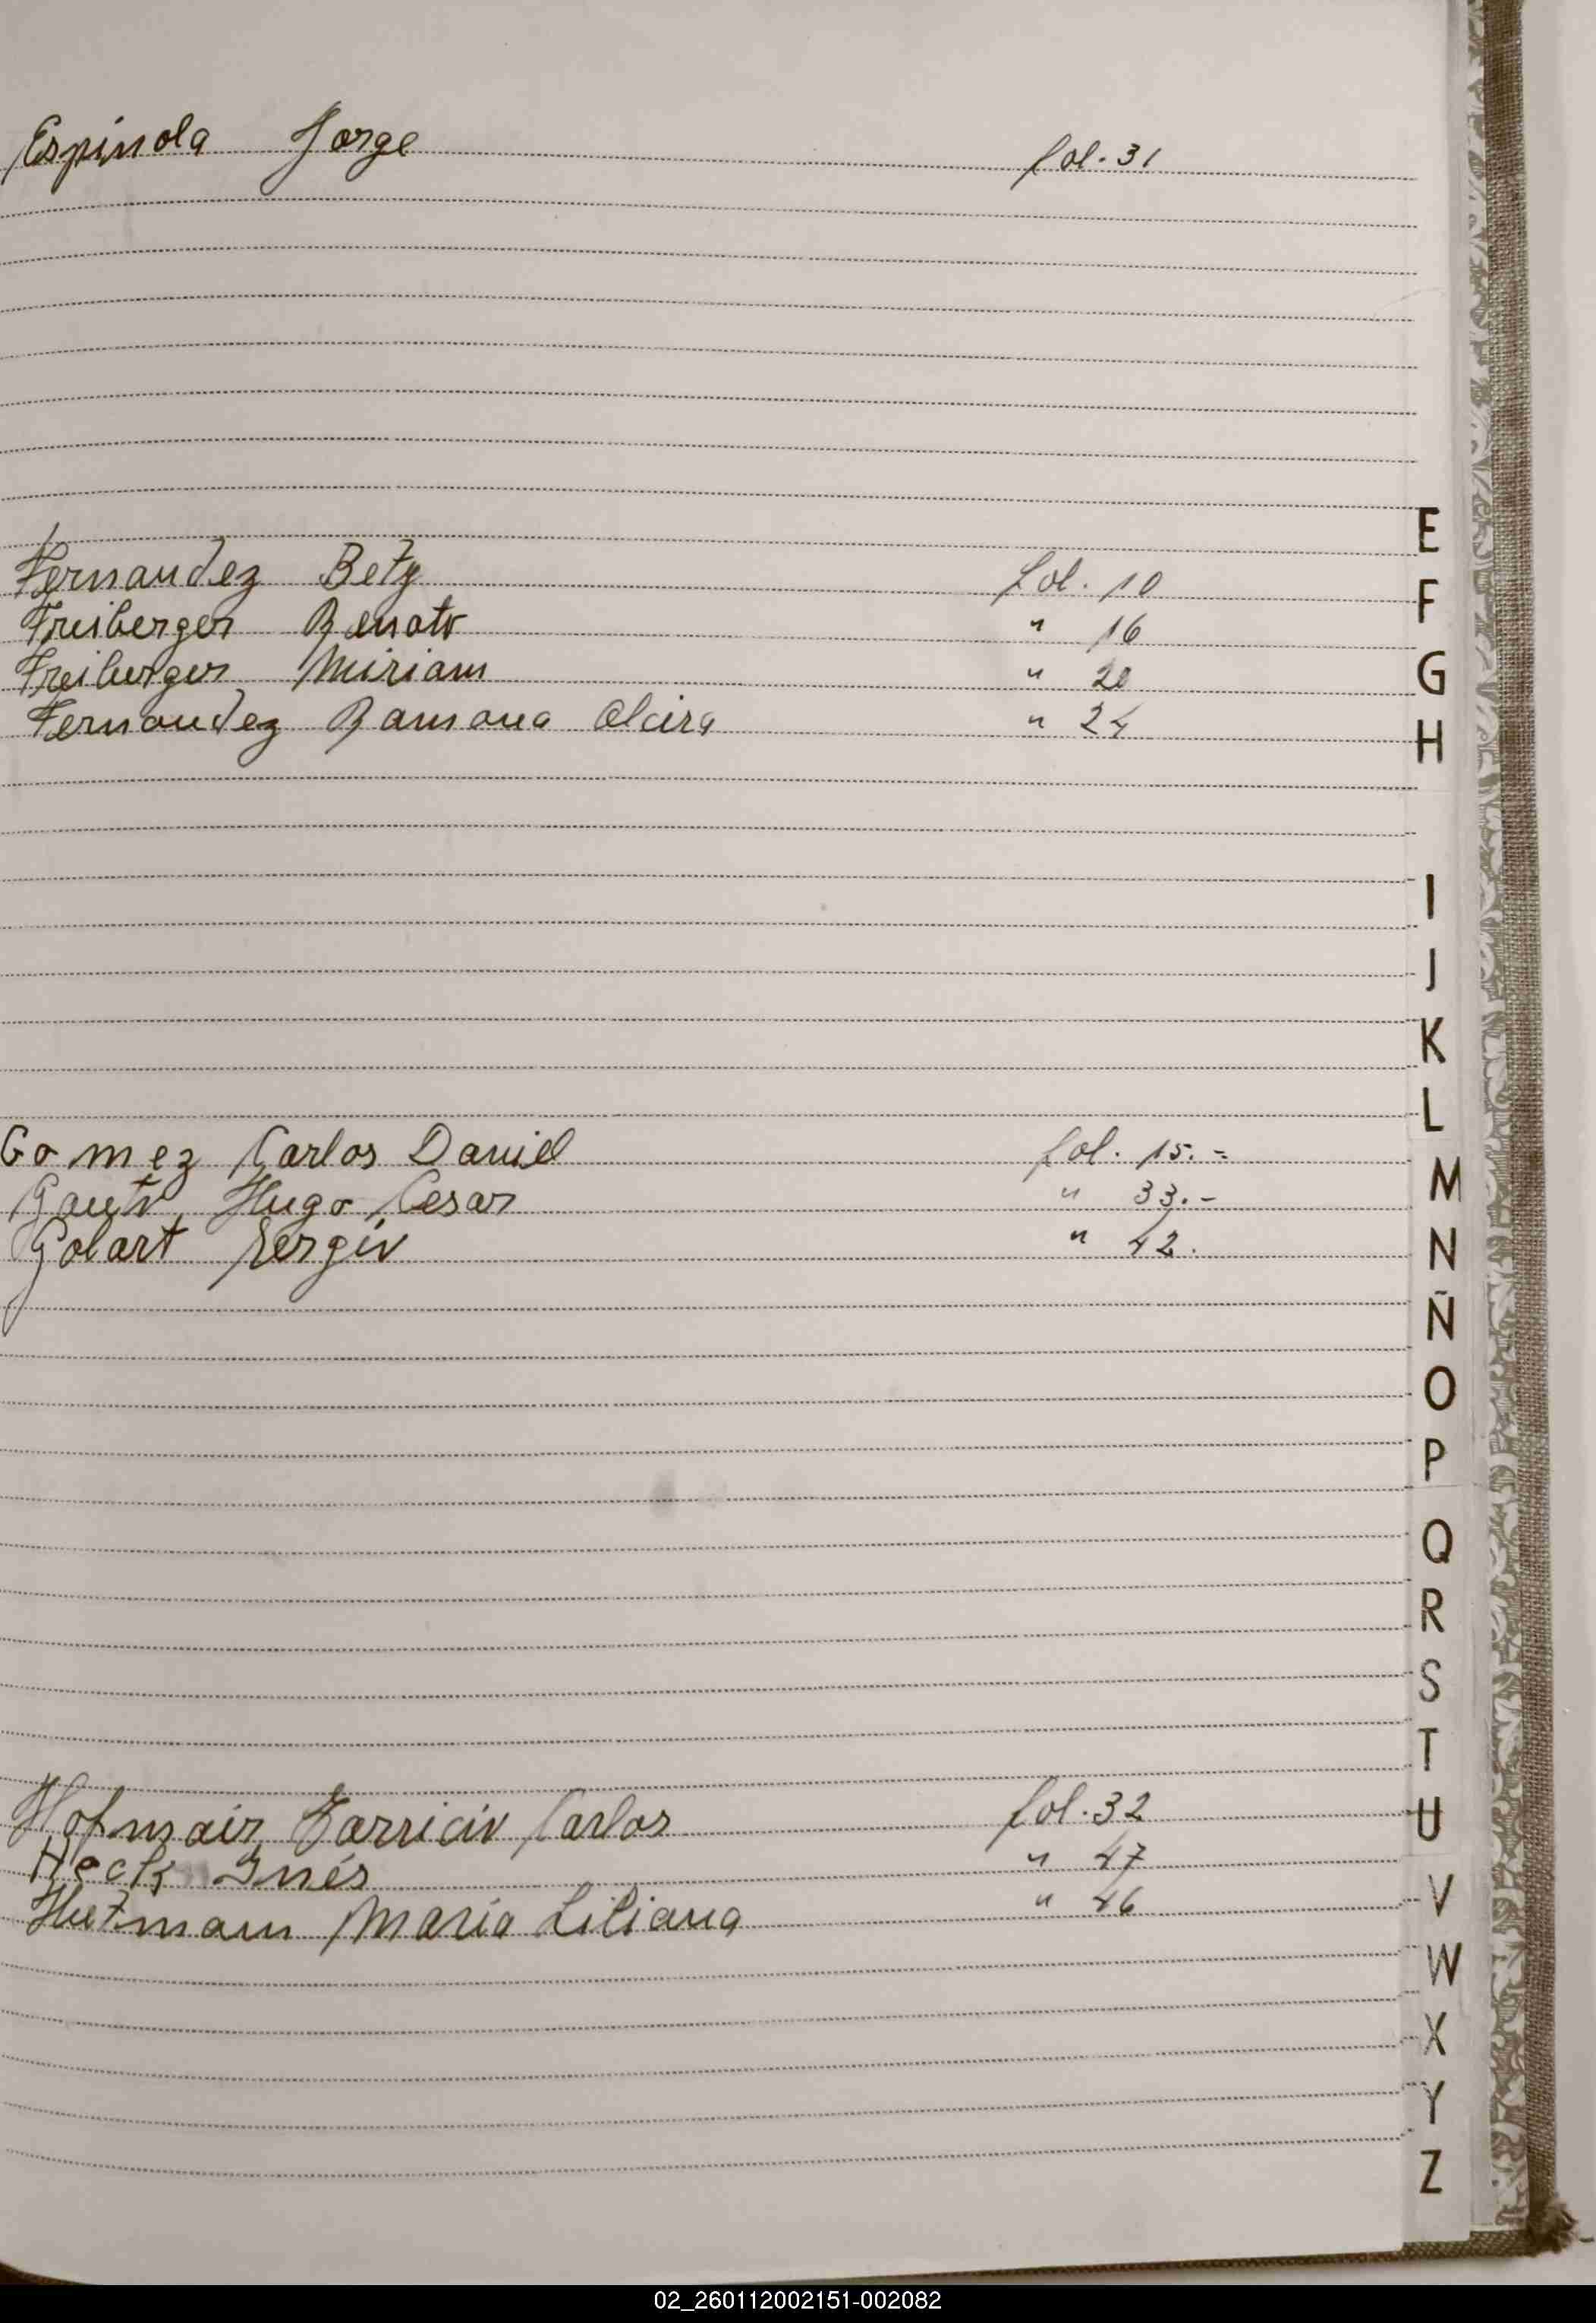 Espinola Jorge fol. 31
Fernandez Bety fol. 10
Freiberger Renato " 16
Freiberger Miriam " 20
Fernandez Ramona Alcira " 24
Gomez Carlos Daniel fol. 15.=
Gauto Hugo Cesar " 33.-
Golart Sergio " 42.
Hofmair Carlos fol. 32
Heck Inés " 47
Hutmam Maria Liliana " 46
E
F
G
H
I
J
K
L
M
N
Ñ
O
P
Q
R
S
T
U
V
W
X
Y
Z
02_260112002151-002082